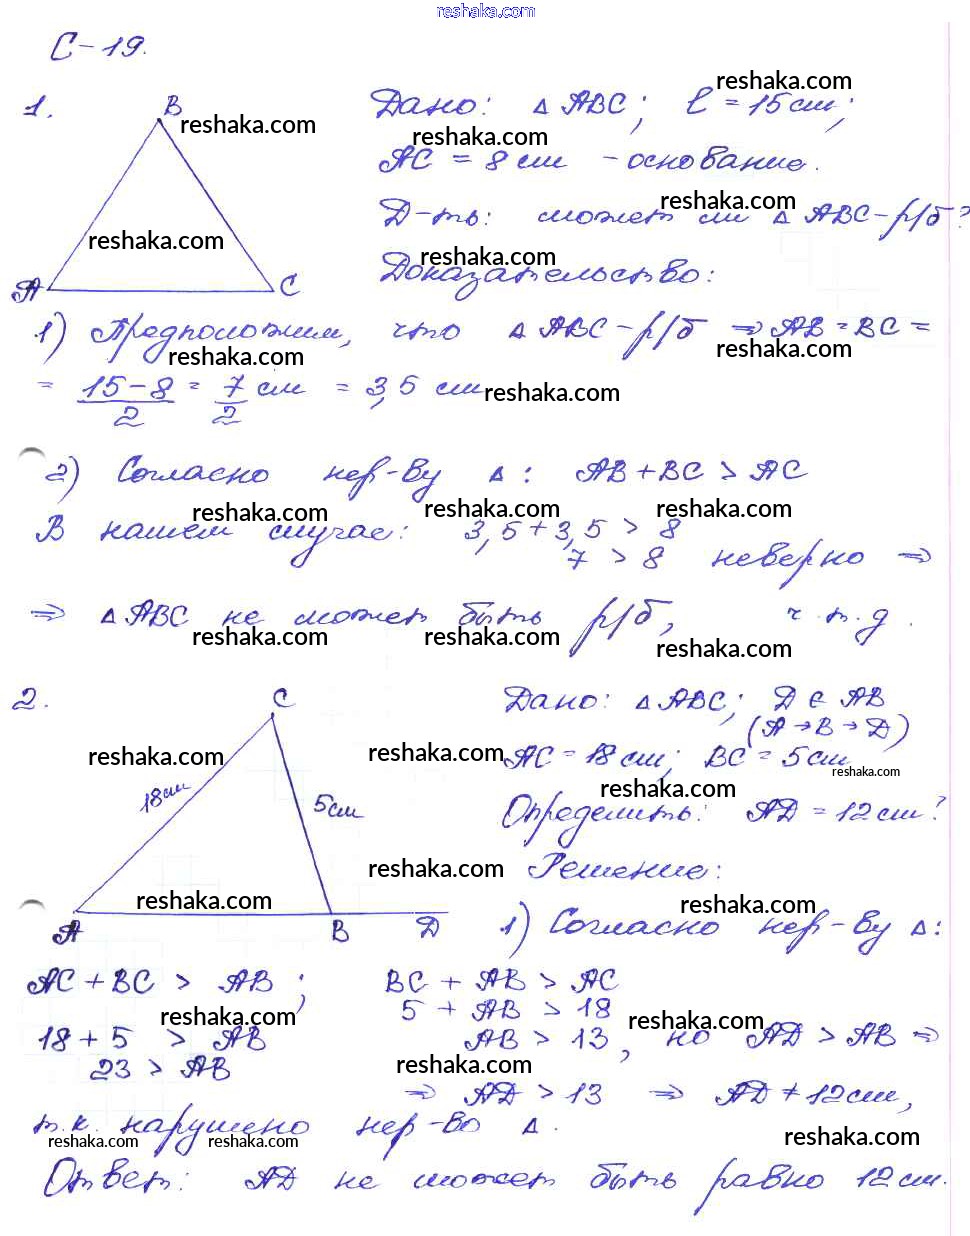 reshaka.com
С-19.
1.
B
A
C
reshaka.com
reshaka.com
Дано: △ ABC; ℓ = 15 см;
reshaka.com
reshaka.com
AC = 8 см - основание.
reshaka.com
Д-ть: может ли △ ABC - р/б?
reshaka.com
Доказательство:
1) Предположим, что △ ABC - р/б ⇒ AB = BC =
reshaka.com
reshaka.com
= (15 - 8)/2 = 7/2 см = 3,5 см
reshaka.com
2) Согласно нер-ву △: AB + BC > AC
reshaka.com
reshaka.com
reshaka.com
В нашем случае: 3,5 + 3,5 > 8
7 > 8 неверно ⇒
⇒ △ ABC не может быть р/б, ч.т.д.
reshaka.com
reshaka.com
reshaka.com
2.
C
18 см
5 см
A
B
D
reshaka.com
reshaka.com
reshaka.com
reshaka.com
Дано: △ ABC; D ∈ AB
(A → B → D)
AC = 18 см; BC = 5 см
reshaka.com
reshaka.com
Определить: AD = 12 см?
Решение:
reshaka.com
1) Согласно нер-ву △:
AC + BC > AB; BC + AB > AC
5 + AB > 18
reshaka.com
reshaka.com
18 + 5 > AB AB > 13, но AD > AB ⇒
23 > AB
reshaka.com
⇒ AD > 13 ⇒ AD ≠ 12 см,
т.к. нарушено нер-во △.
reshaka.com
reshaka.com
reshaka.com
Ответ: AD не может быть равно 12 см.